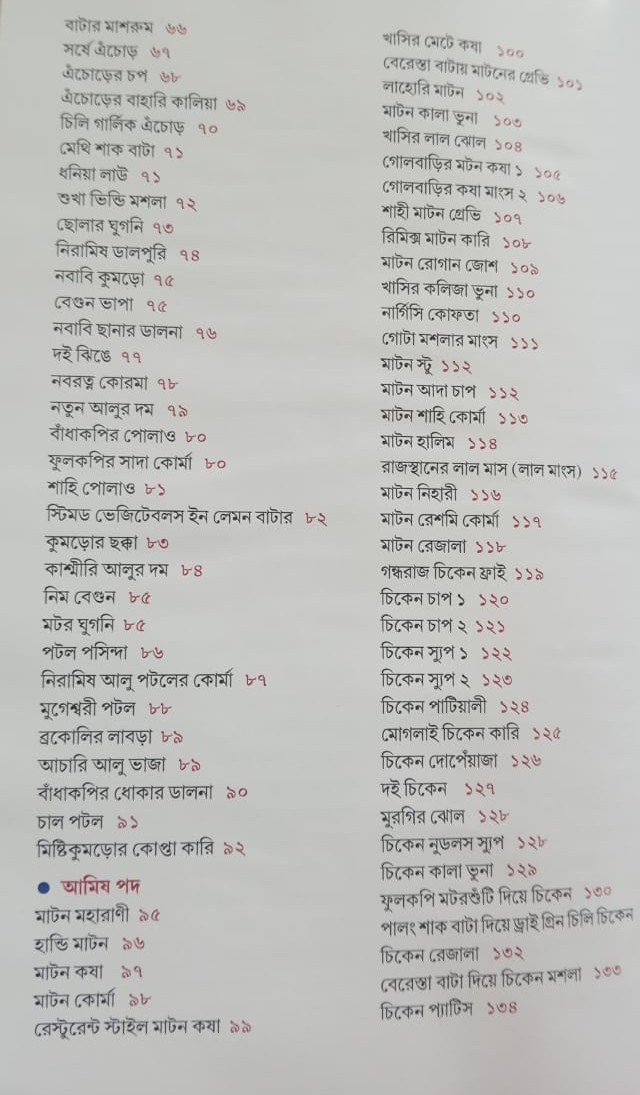 বাটার মাশরুম ৬৬
সর্ষে এঁচোড় ৬৭
এঁচোড়ের চপ ৬৮
এঁচোড়ের বাহারি কালিয়া ৬৯
চিলি গার্লিক এঁচোড় ৭০
মেথি শাক বাটা ৭১
ধনিয়া লাউ ৭১
শুখা ভিন্ডি মশলা ৭২
ছোলার ঘুগনি ৭৩
নিরামিষ ডালপুরি ৭৪
নবাবি কুমড়ো ৭৫
বেগুন ভাপা ৭৫
নবাবি ছানার ডালনা ৭৬
দই ঝিঙে ৭৭
নবরত্ন কোরমা ৭৮
নতুন আলুর দম ৭৯
বাঁধাকপির পোলাও ৮০
ফুলকপির সাদা কোর্মা ৮০
শাহি পোলাও ৮১
স্টিমড ভেজিটেবলস ইন লেমন বাটার ৮২
কুমড়োর ছক্কা ৮৩
কাশ্মীরি আলুর দম ৮৪
নিম বেগুন ৮৫
মটর ঘুগনি ৮৫
পটল পসিন্দা ৮৬
নিরামিষ আলু পটলের কোর্মা ৮৭
মুগেশ্বরী পটল ৮৮
ব্রকোলির লাবড়া ৮৯
আচারি আলু ভাজা ৮৯
বাঁধাকপির ধোকার ডালনা ৯০
চাল পটল ৯১
মিষ্টিকুমড়োর কোপ্তা কারি ৯২
আমিষ পদ
মাটন মহারাণী ৯৫
হান্ডি মাটন ৯৬
মাটন কষা ৯৭
মাটন কোর্মা ৯৮
রেস্টুরেন্ট স্টাইল মাটন কষা ৯৯
খাসির মেটে কষা ১০০
বেরেস্তা বাটায় মাটনের গ্রেভি ১০১
লাহোরি মাটন ১০২
মাটন কালা ভুনা ১০৩
খাসির লাল ঝোল ১০৪
গোলবাড়ির মটন কষা ১ ১০৫
গোলবাড়ির কষা মাংস ২ ১০৬
শাহী মাটন গ্রেভি ১০৭
রিমিক্স মাটন কারি ১০৮
মাটন রোগান জোশ ১০৯
খাসির কলিজা ভুনা ১১০
নার্গিসি কোফতা ১১০
গোটা মশলার মাংস ১১১
মাটন স্টু ১১২
মাটন আদা চাপ ১১২
মাটন শাহি কোর্মা ১১৩
মাটন হালিম ১১৪
রাজস্থানের লাল মাস (লাল মাংস) ১১৫
মাটন নিহারী ১১৬
মাটন রেশমি কোর্মা ১১৭
মাটন রেজালা ১১৮
গন্ধরাজ চিকেন ফ্রাই ১১৯
চিকেন চাপ ১ ১২০
চিকেন চাপ ২ ১২১
চিকেন স্যুপ ১ ১২২
চিকেন স্যুপ ২ ১২৩
চিকেন পাটিয়ালী ১২৪
মোগলাই চিকেন কারি ১২৫
চিকেন দোপেঁয়াজা ১২৬
দই চিকেন ১২৭
মুরগির ঝোল ১২৮
চিকেন নুডলস স্যুপ ১২৮
চিকেন কালা ভুনা ১২৯
ফুলকপি মটরশুঁটি দিয়ে চিকেন ১৩০
পালং শাক বাটা দিয়ে ড্রাই গ্রিন চিলি চিকেন
চিকেন রেজালা ১৩২
বেরেস্তা বাটা দিয়ে চিকেন মশলা ১৩৩
চিকেন প্যাটিস ১৩৪